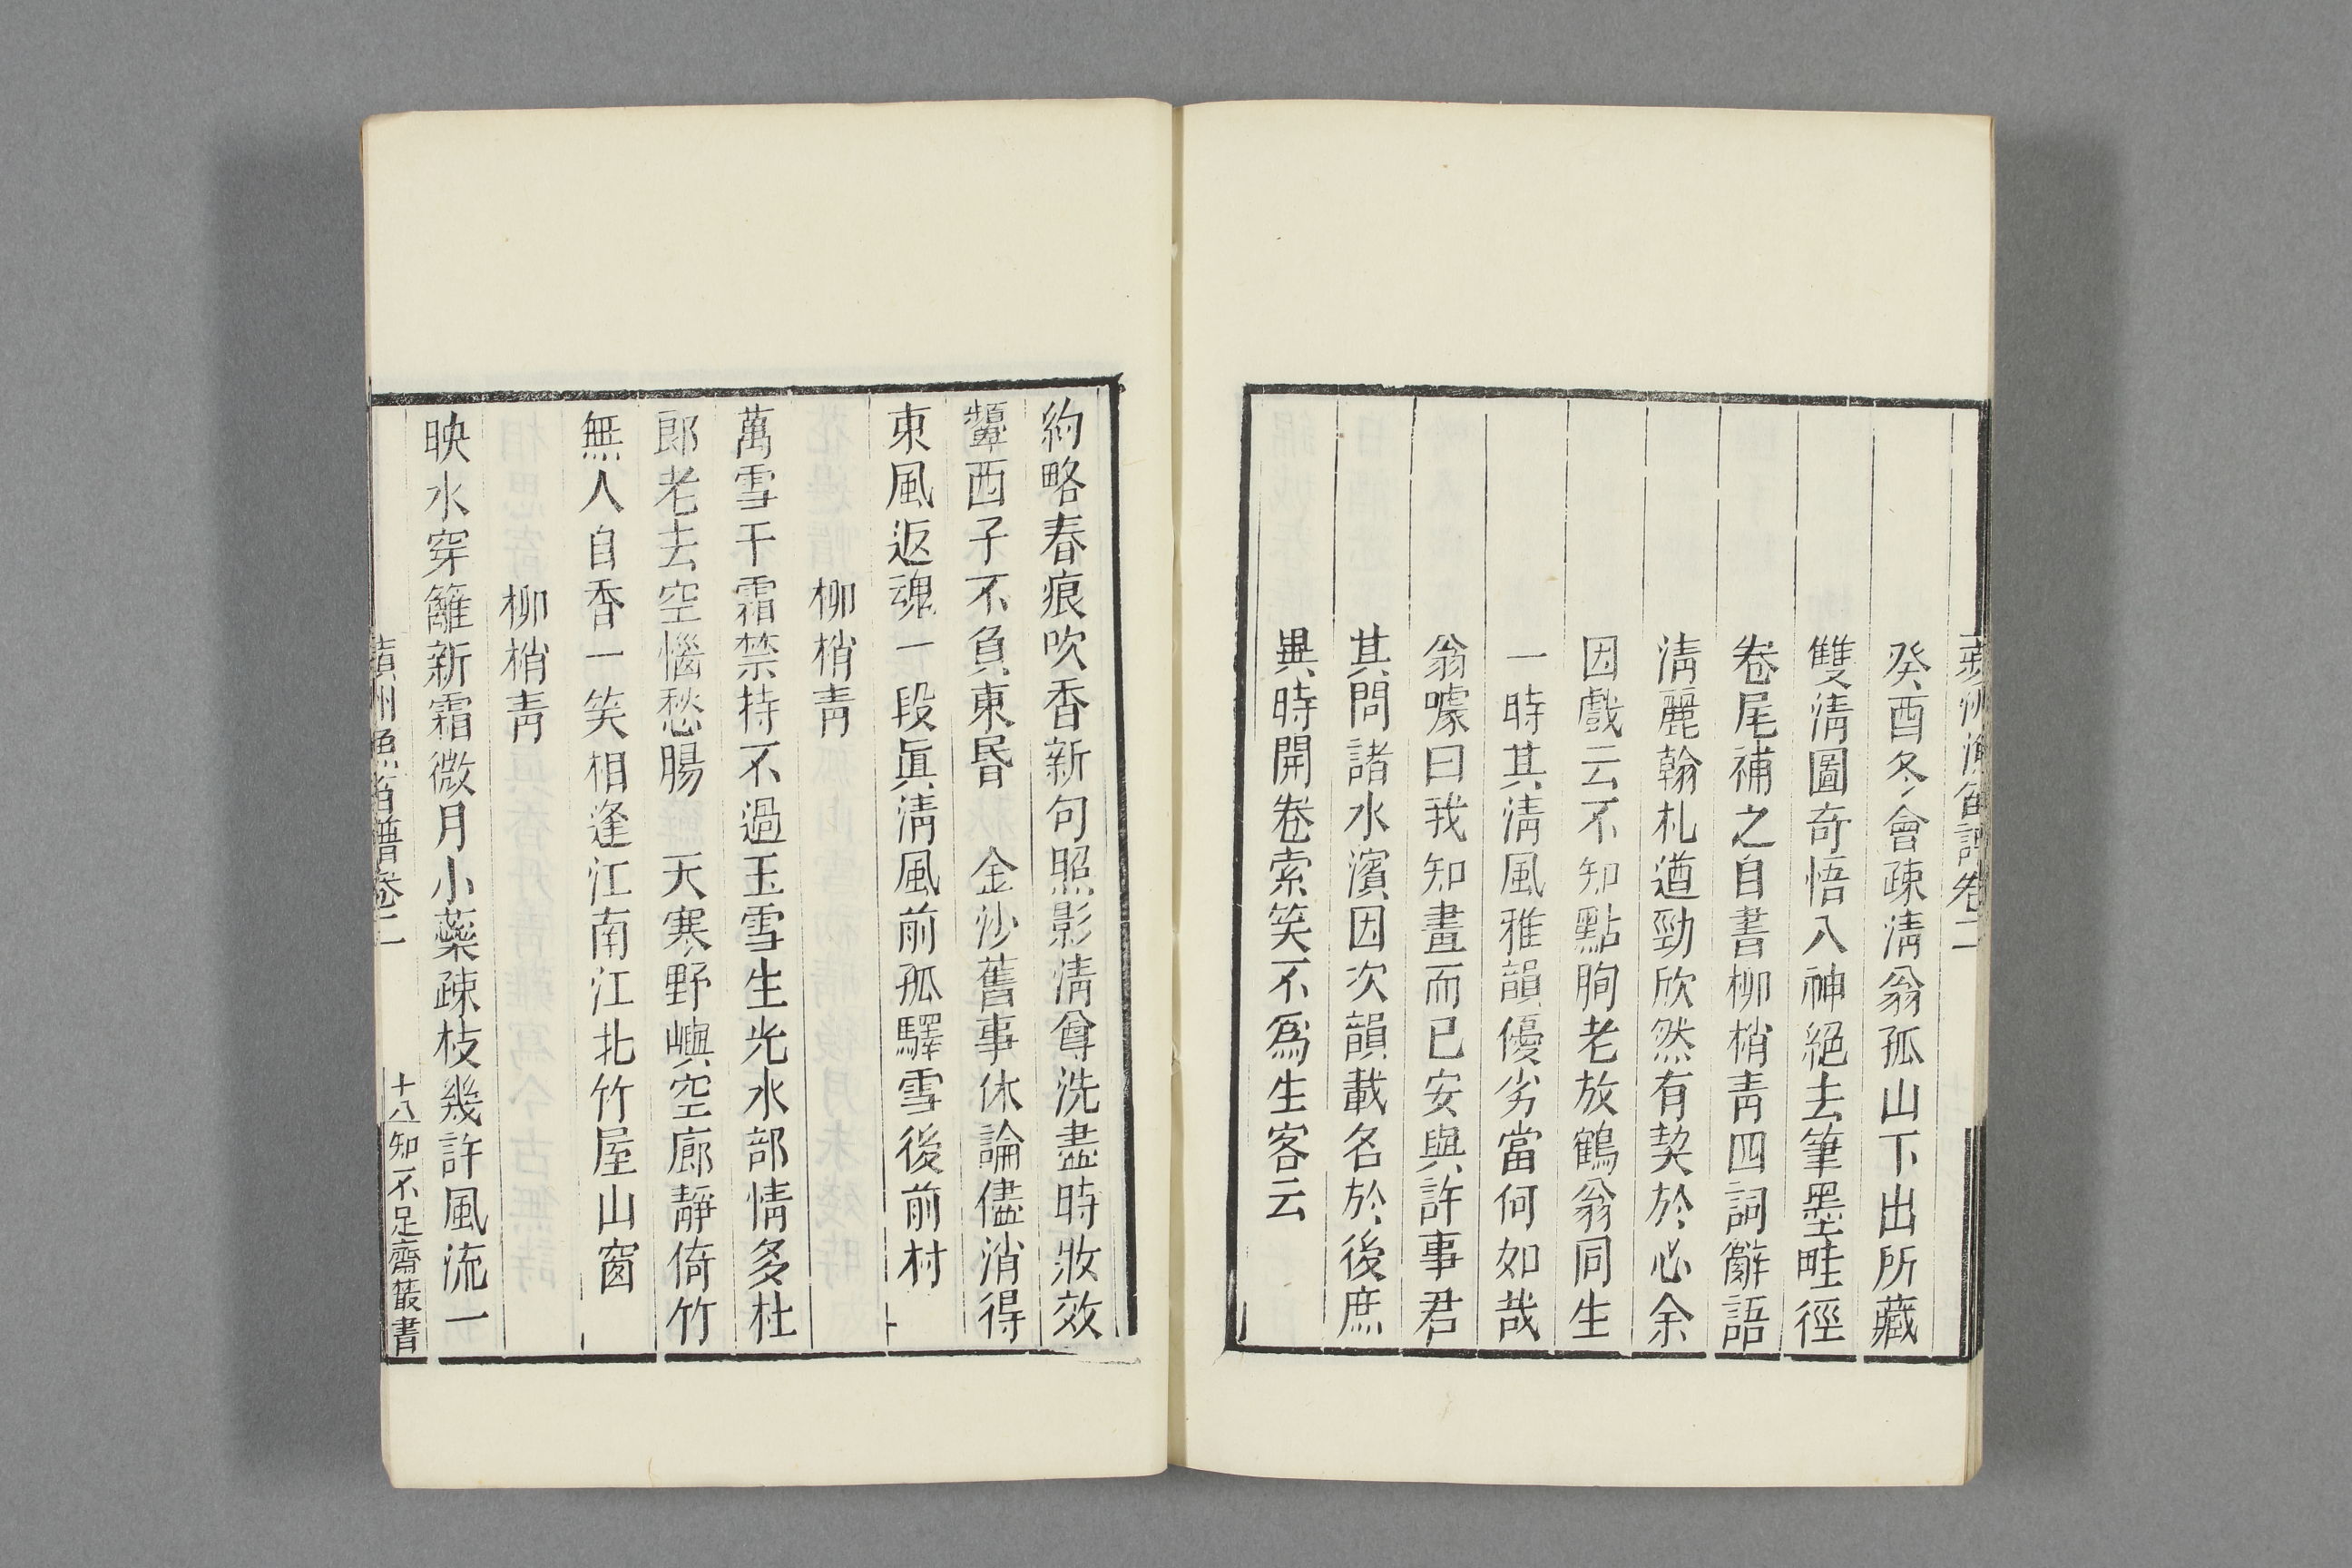 蘋洲漁笛譜卷二
癸酉冬會疎淸翁孤山下出所藏
雙淸圖奇悟入神絕去筆墨畦徑
卷尾補之自書柳梢靑四詞辭語
淸麗翰札遒勁欣然有契於心余
因戲云不知點胸老放鶴翁同生
一時其淸風雅韻優劣當何如哉
翁噱曰我知畫而已安與許事君
其問諸水濱因次韻載名於後庶
異時開卷索笑不爲生客云
約略春痕吹香新句照影淸尊洗盡時妝效
顰西子不負東昏　金沙舊事休論儘消得
東風返魂一段眞淸風前孤驛雪後前村
柳梢靑
萬雪千霜禁持不過玉雪生光水部情多杜
郞老去空惱愁腸　天寒野嶼空廊靜倚竹
無人自香一笑相逢江南江北竹屋山窗
柳梢靑
映水穿籬新霜微月小蘂疎枝幾許風流一
蘋洲漁笛譜卷二　十八　知不足齋叢書